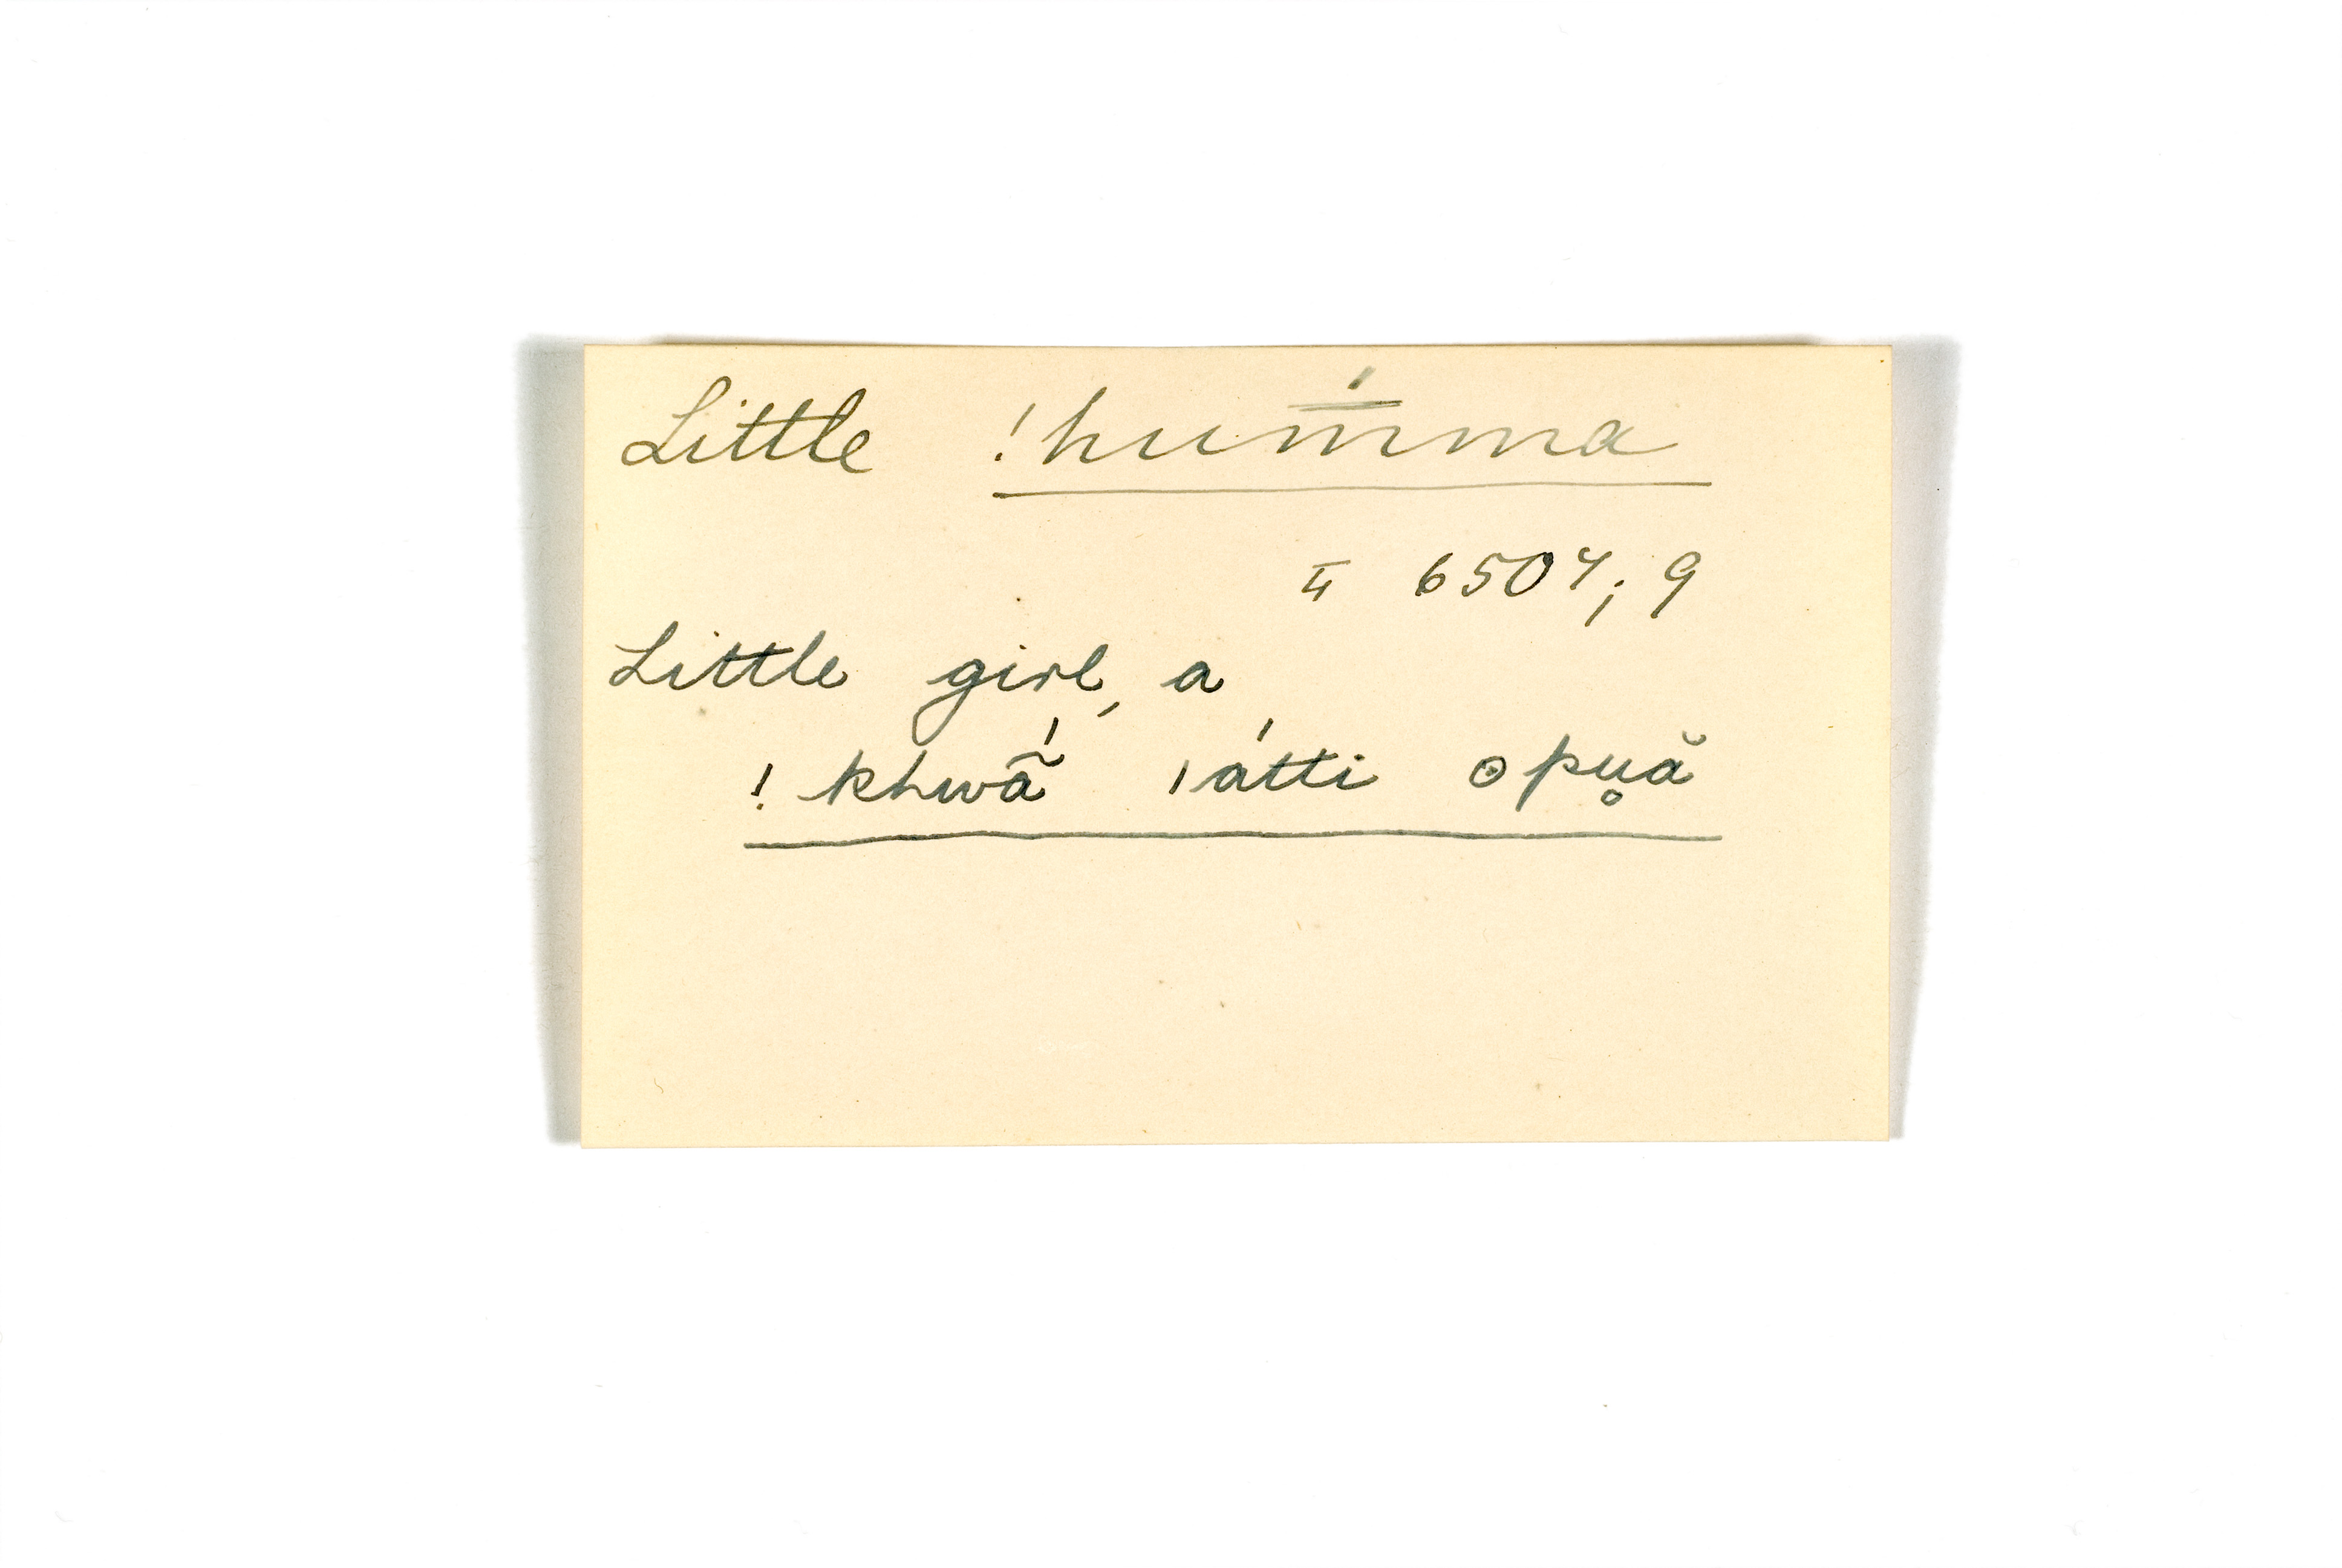 Little !hum̿́ma
II 6504; 9
Little girl, a
!khwã́ |átti ʘpu̥ă